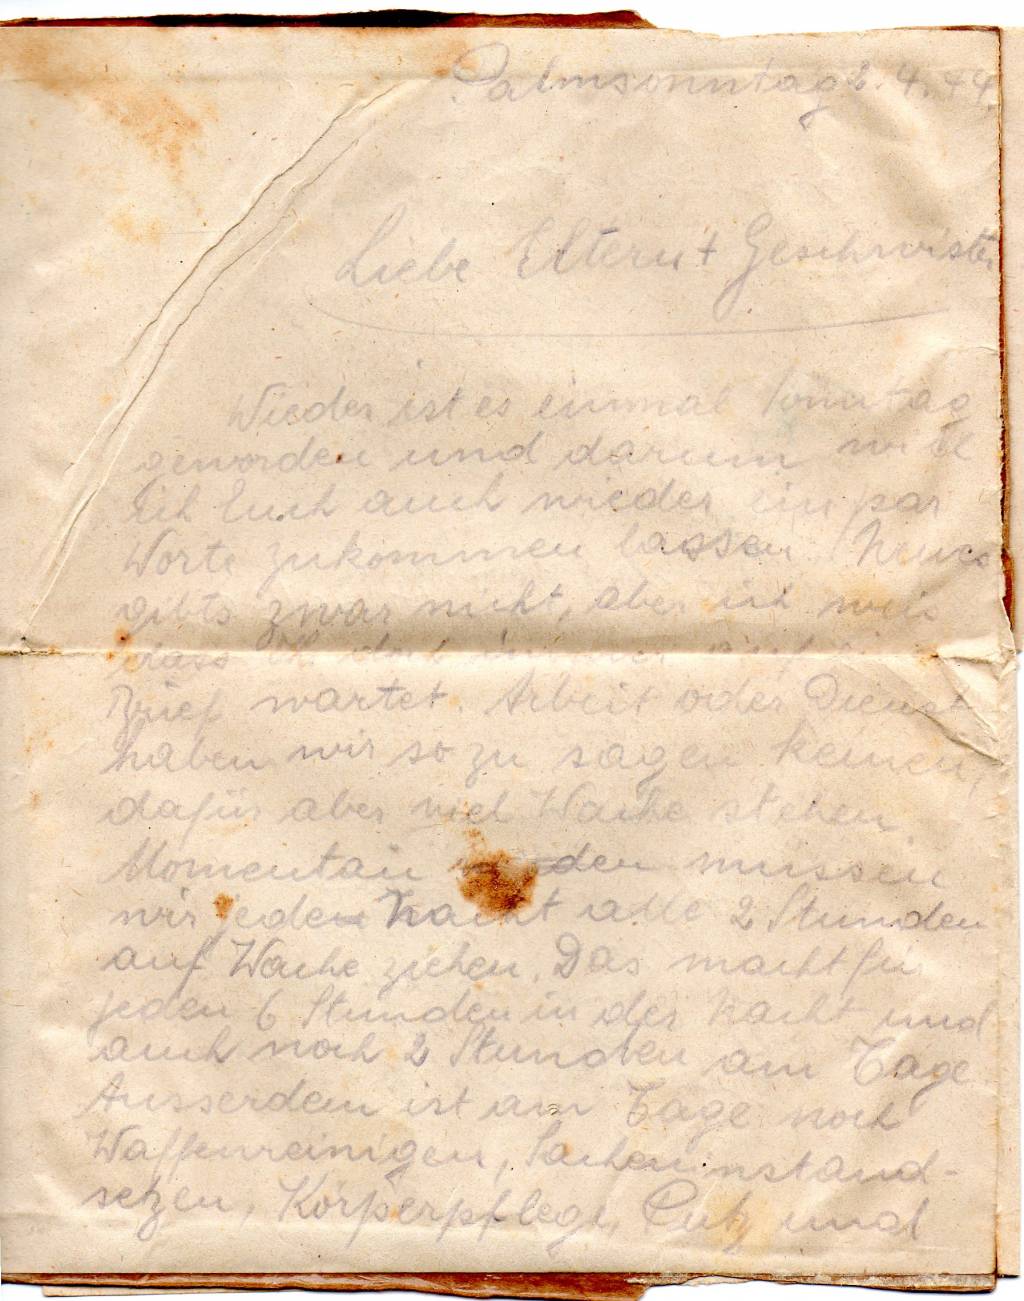 Palmsonntag 2.4.44.
Liebe Eltern + Geschwister
Wieder ist es einmal Sonntag
geworden und darum will
Ich Euch auch wieder ein par
Worte zukommen lassen. Neues
gibts zwar nicht, aber ich weis
dass Ih doch immer auf
Brief wartet. Arbeit oder Dienst
haben wir so zu sagen keinen,
dafür aber viel Wache stehen.
Momentan müssen
wir jede Nacht alle 2 Stunden
auf Wache ziehen. Das macht für
jeden 6 Stunden in der Nacht und
auch noch 2 Stunden am Tage
Ausserdem ist am Tage noch
Waffenreinigen, Sachen instand-
setzen, Körperpflege, Putz und